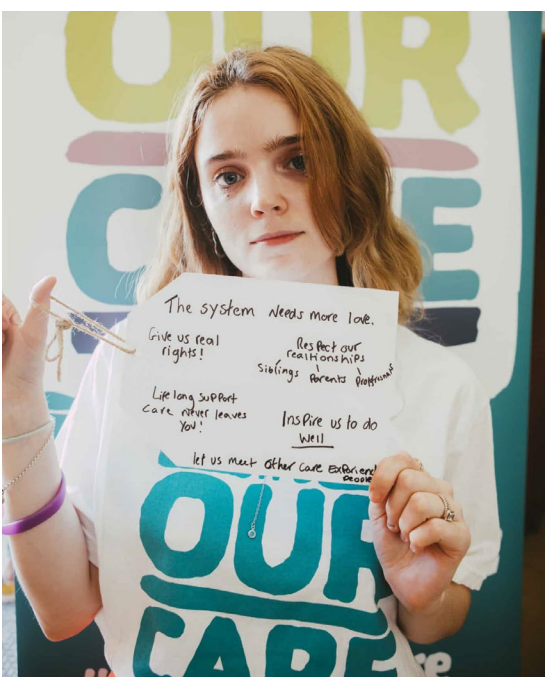 OUR
CARE
The system Needs more love.
Give us real
rights!
Respect our
realtionships
Siblings Parents Proffesionals
Life long support
Care never leaves
You!
Inspire us to do
Well
let us meet other Care Experiend
people
OUR
CARE